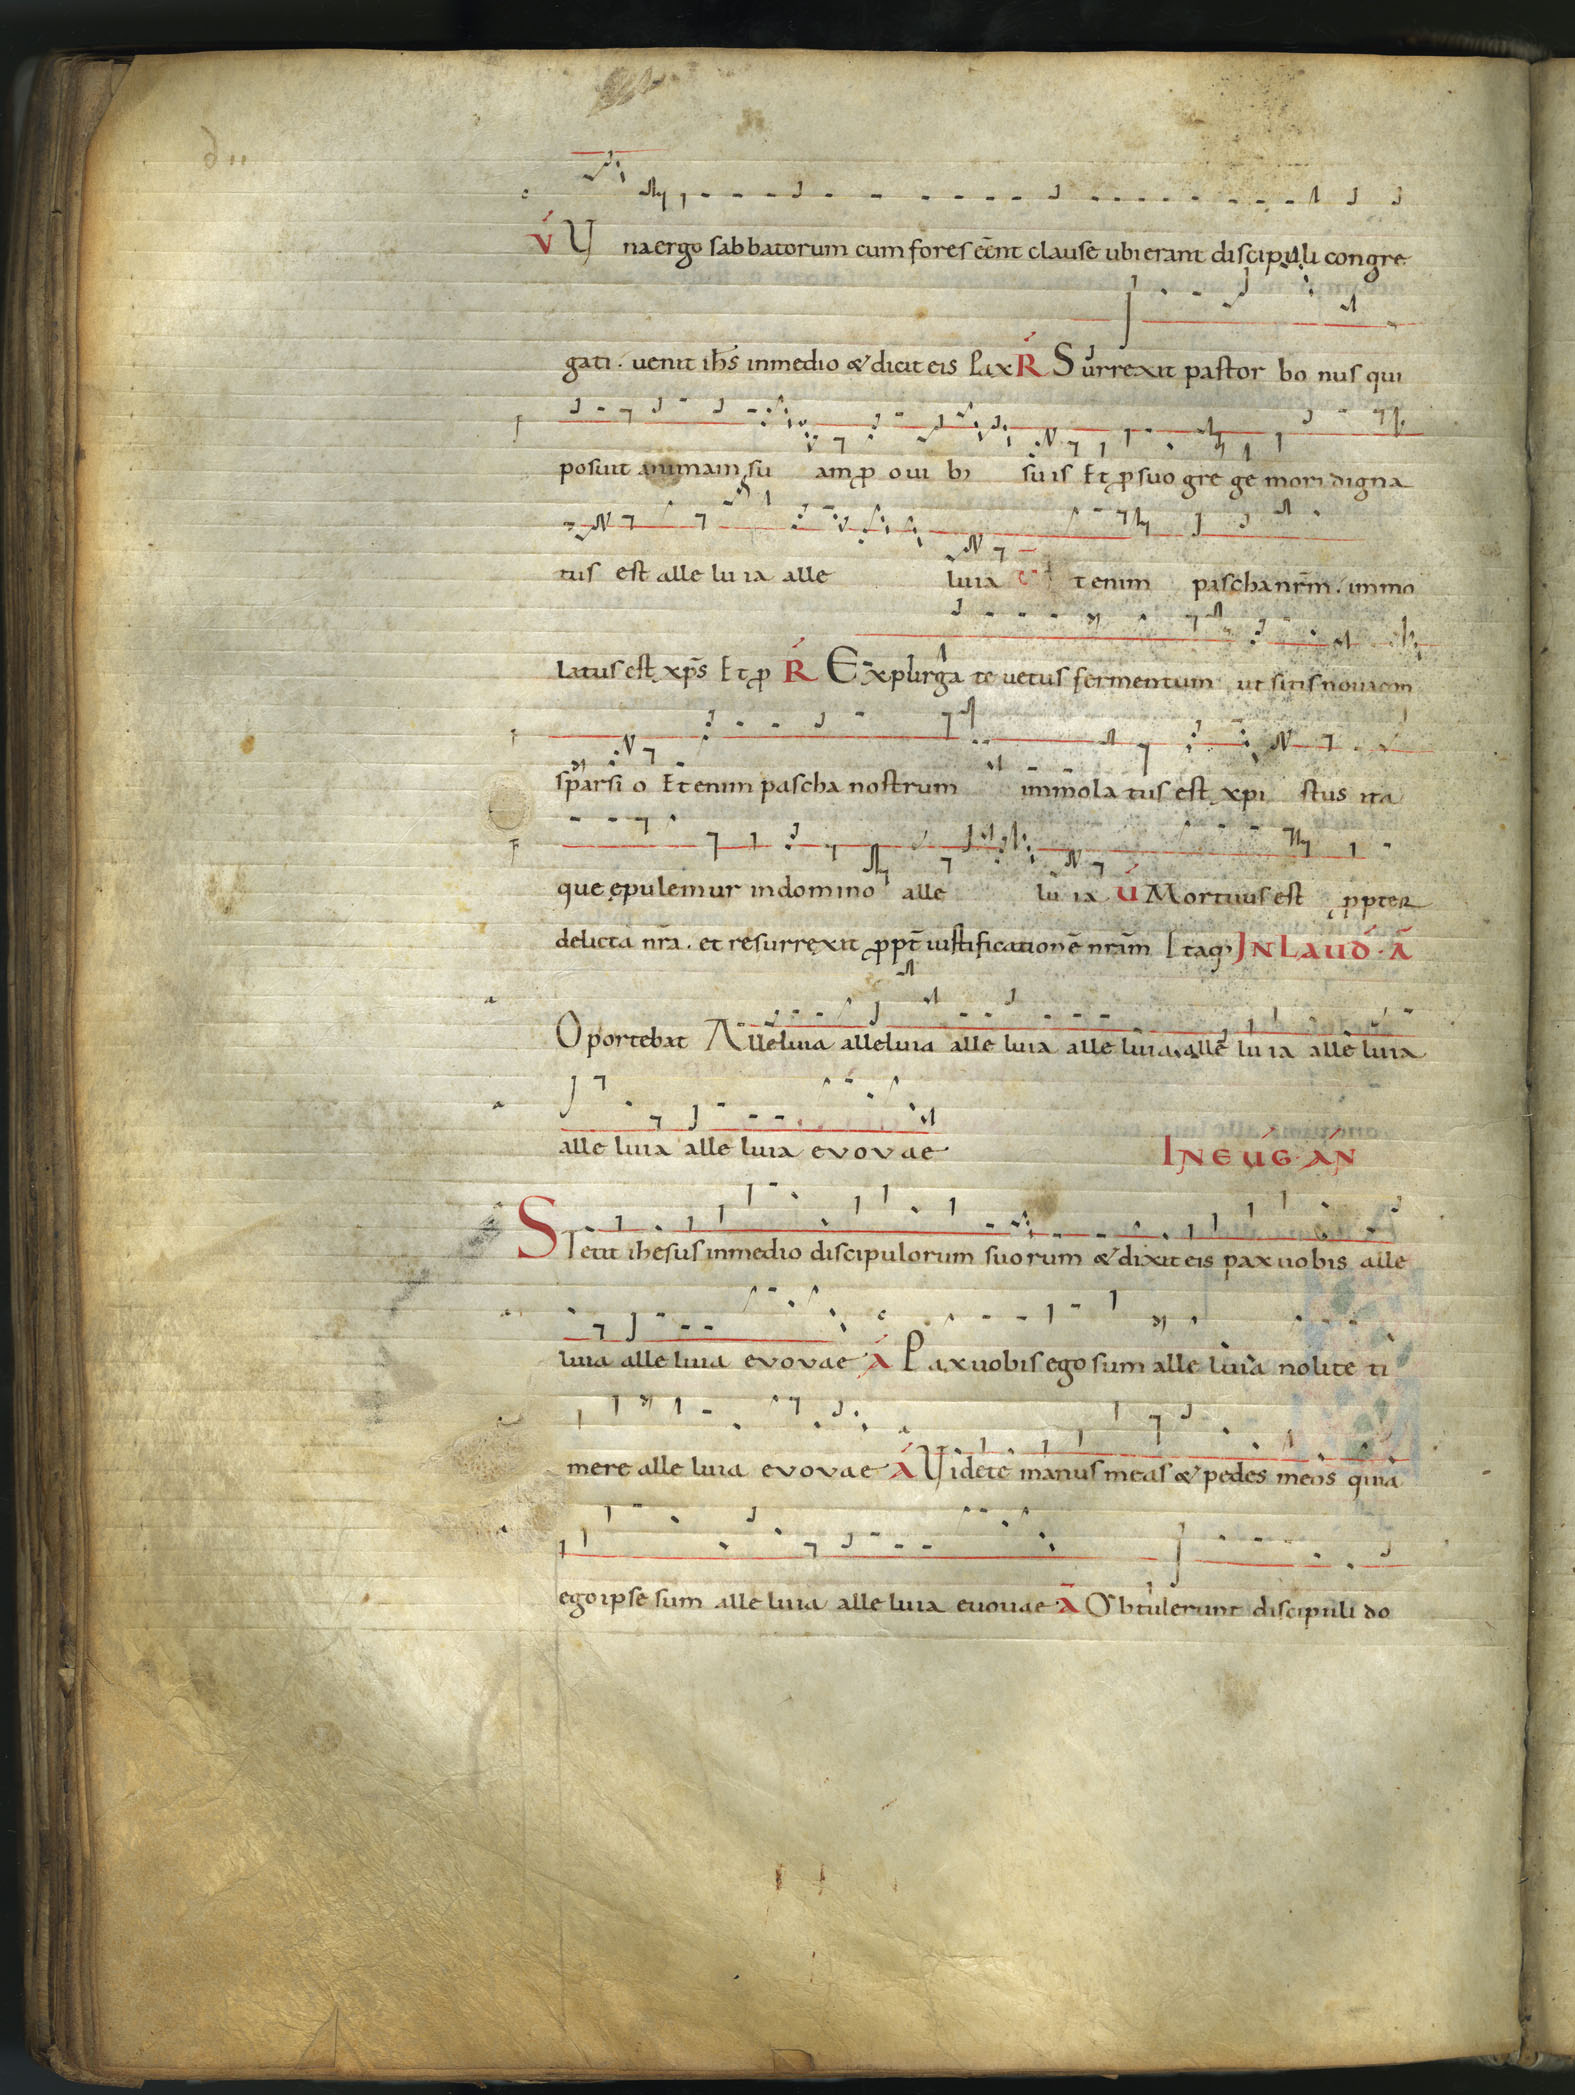 V́ Una ergo sabbatorum cum fores eēnt clause ubi erant discipuli congre
gati . uenit ih̄s in medio & dicit eis Pax Ŕ Surrexit pastor bo nus qui
posuit animam su am ꝓ oui bꝫ suis Et ꝓ suo gre ge mori digna
tus est alle lu ia alle luia tenim pascha nr̄m . immo
latus est xp̄s Et ꝓ Ŕ Expurga te uetus fermentum ut sitis noua con
sparsi o Et enim pascha nostrum immola tus est xpi stus ita
que epulemur in domino alle lu ia Ú Mortuus est ꝓpter
delicta nr̄a . et resurrexit ꝓpt̄ iustificationē nrām Itaqꝫ IN LAUD́ · Ā
Oportebat Alleluia alleluia alle luia alle luia . alle lu ia alle luia
alle luia alle luia evovae IN EÚG · ÁN
Stetit ihesus in medio discipulorum suorum & dixit eis pax uobis alle
luia alle luia evovae Á Pax uobis ego sum alle luia nolite ti
mere alle luia evovae Á Videte manus meas & pedes meos quia
ego ipse sum alle luia alle luia euouae Ā Obtulerunt discipuli do